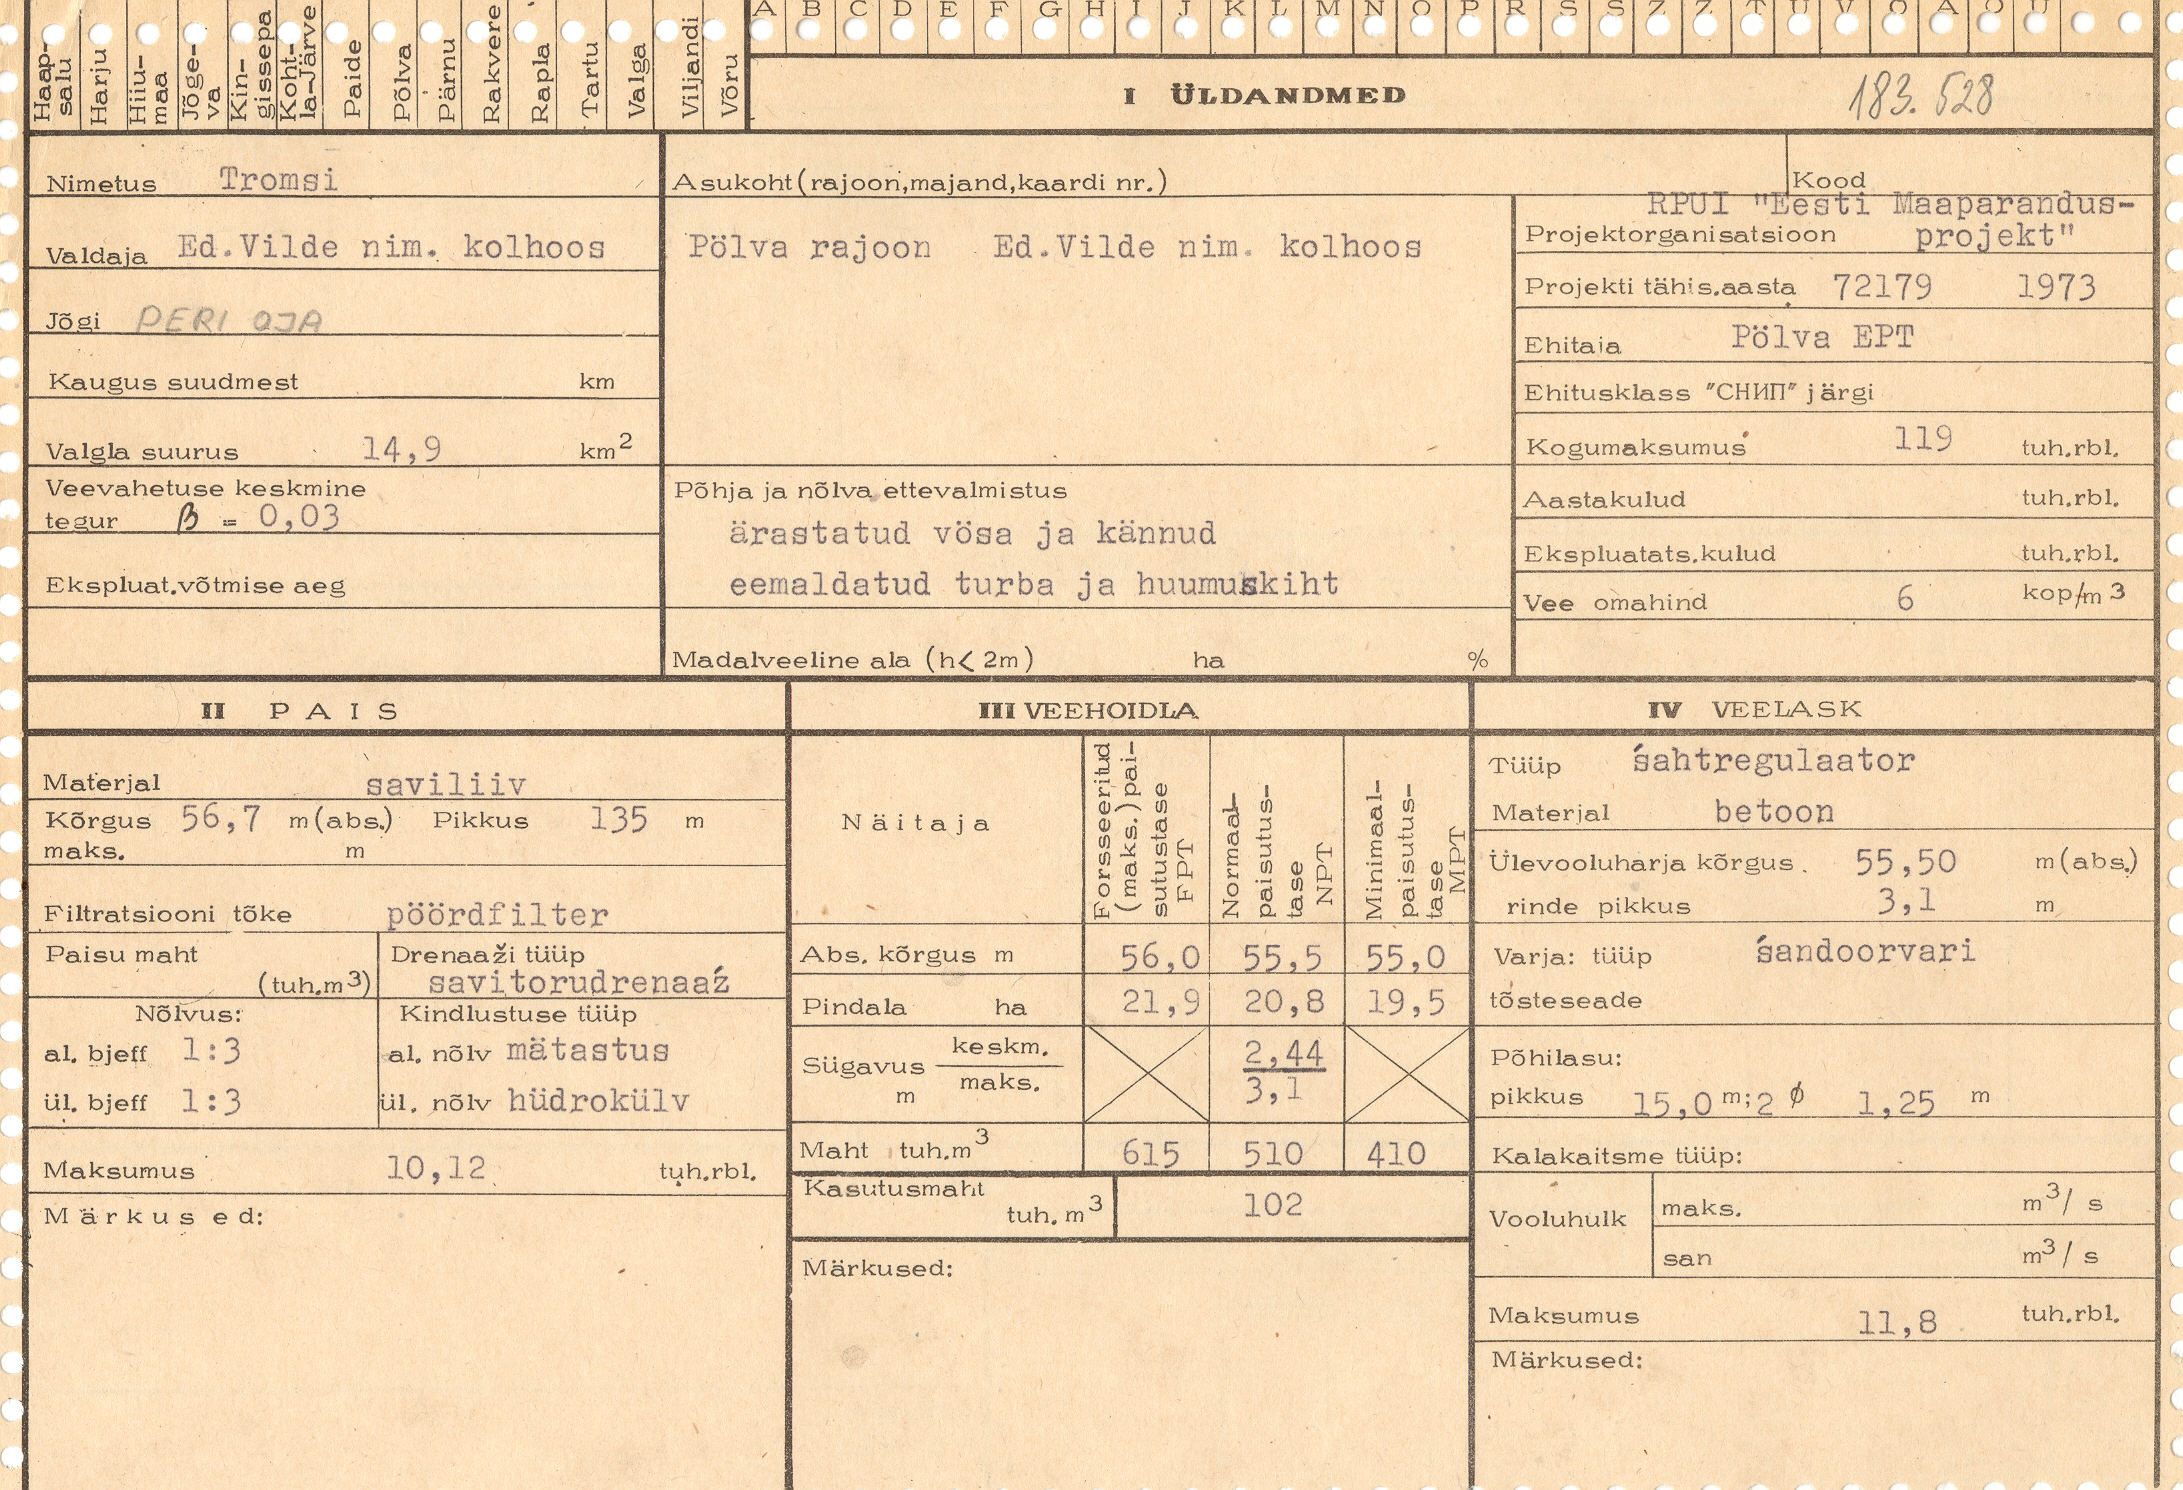 A B C D E F G H I J K L M N O P R S S Z Z T U V O A O U
Haap-salu Harju Hiiu-maa Jõge-va Kin-gissepa Koht-la-Järve Paide Põlva Pärnu Rakvere Rapla Tartu Valga Viljandi Võru
I ÜLDANDMED 183.528
Nimetus Tromsi
Valdaja Ed.Vilde nim. kolhoos
Jõgi PERI OJA
Kaugus suudmest km
Valgla suurus 14,9 km2
Veevahetuse keskmine
tegur β = 0,03
Ekspluat.võtmise aeg
Asukoht(rajoon,majand,kaardi nr.)
Pölva rajoon Ed.Vilde nim. kolhoos
Põhja ja nõlva ettevalmistus
ärastatud vösa ja kännud
eemaldatud turba ja huumuskiht
Madalveeline ala (h< 2m) ha %
Kood
RPUI "Eesti Maaparandus-
Projektorganisatsioon projekt"
Projekti tähis.aasta 72179 1973
Ehitaja Pölva EPT
Ehitusklass "СНИП" järgi
Kogumaksumus 119 tuh.rbl.
Aastakulud tuh.rbl.
Ekspluatats.kulud tuh.rbl.
Vee omahind 6 kop/m3
II PAIS
Materjal saviliiv
Kõrgus 56,7 m(abs.) Pikkus 135 m
maks. m
Filtratsiooni tõke pöördfilter
Paisu maht
(tuh.m3)
Drenaaži tüüp
savitorudrenaaź
Nõlvus:
al. bjeff 1:3
ül. bjeff 1:3
Kindlustuse tüüp
al. nõlv mätastus
ül. nõlv hüdrokülv
Maksumus 10,12 tuh.rbl.
Märkused:
III VEEHOIDLA
Näitaja
Forsseeritud
(maks.) pai-
sutustase
FPT
Normaal-
paisutus-
tase
NPT
Minimaal-
paisutus-
tase
MPT
Abs. kõrgus m 56,0 55,5 55,0
Pindala ha 21,9 20,8 19,5
Sügavus keskm. 2,44
m maks. 3,1
Maht tuh.m3 615 510 410
Kasutusmaht
tuh.m3 102
Märkused:
IV VEELASK
Tüüp śahtregulaator
Materjal betoon
Ülevooluharja kõrgus. 55,50 m(abs.)
rinde pikkus 3,1 m
Varja: tüüp śandoorvari
tõsteseade
Põhilasu:
pikkus 15,0 m;2 ø 1,25 m
Kalakaitsme tüüp:
Vooluhulk maks. m3/s
san m3/s
Maksumus 11,8 tuh.rbl.
Märkused: